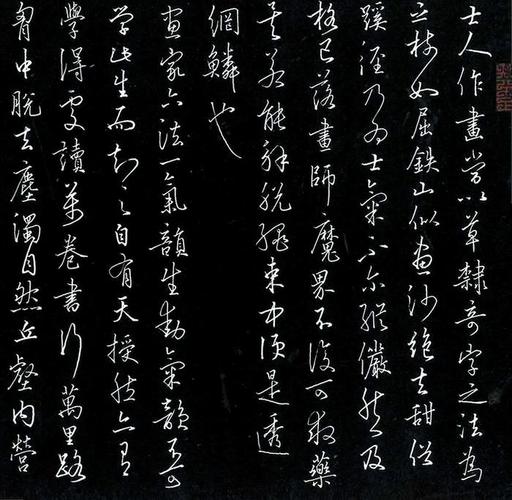 士人作畫當以草隸奇字之法為
之樹如屈鉄山似畫沙絕去甜俗
蹊徑乃為士氣不尔縱儼然及
格已落畫師魔界不復可救藥
矣若能解脫繩束中須是透
網鱗也
畫家六法一氣韻生動氣韻不可
学此生而知之自有天授然亦有
學得處讀萬卷書行萬里路
胷中脫去塵濁自然丘壑內營